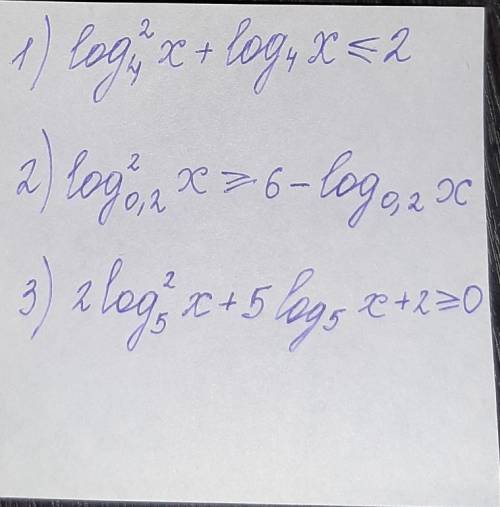 1) log₄² x + log₄ x ≤ 2
2) log²₀,₂ x ≥ 6 - log₀,₂ x
3) 2 log₅² x + 5 log₅ x + 2 ≥ 0